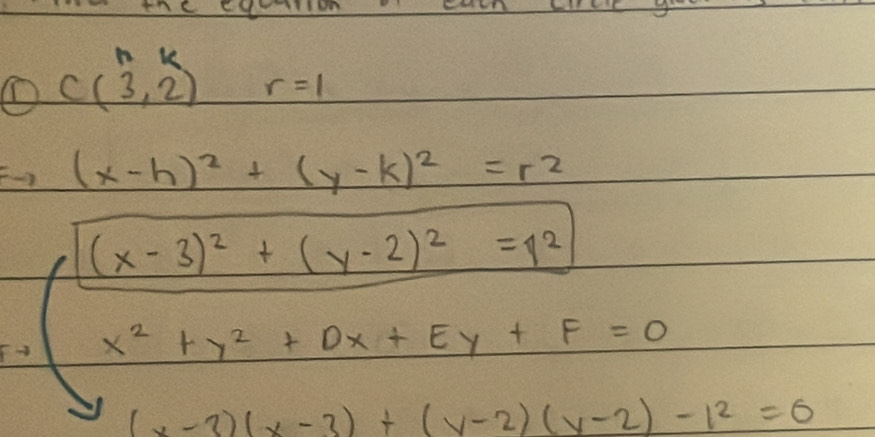 the equation of each circle
① C(3,2) r=1
h k
(x-h)² + (y-k)² = r²
(x-3)² + (y-2)² = 1²
x² + y² + Dx + Ey + F = 0
(x-3)(x-3) + (y-2)(y-2) - 1² = 0